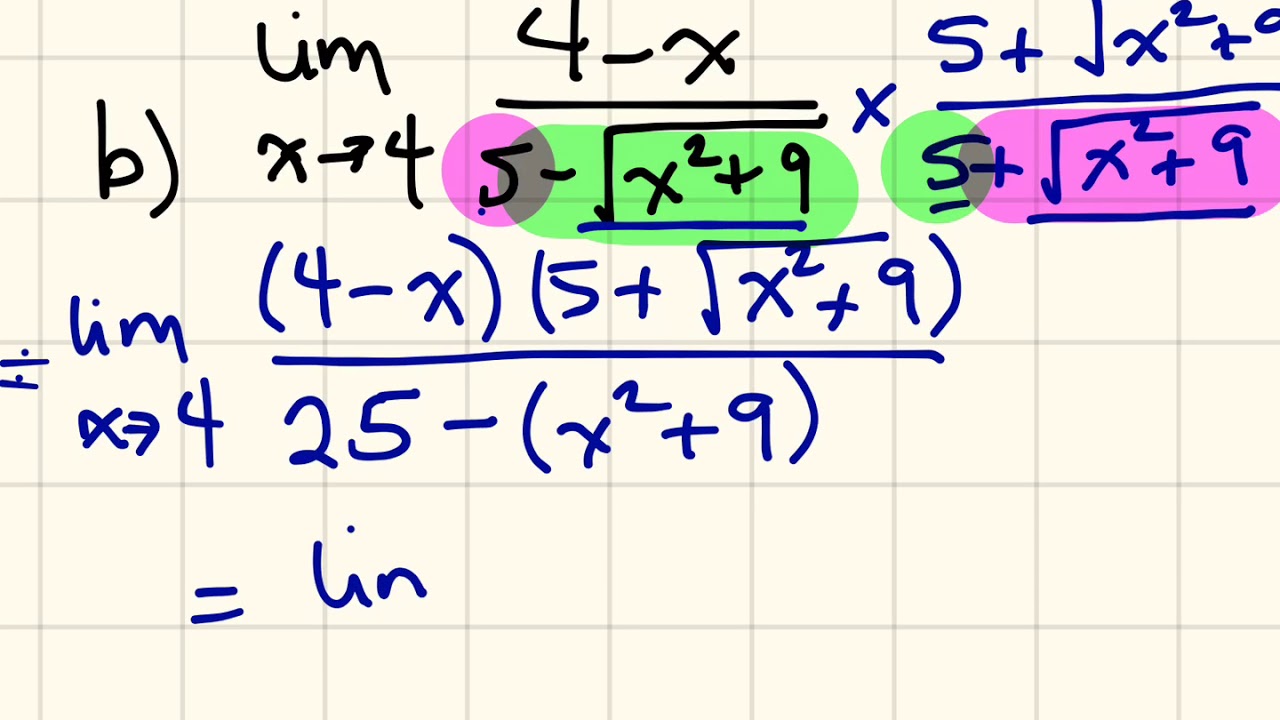 b) lim x→4 (4 - x)/(5 - √(x² + 9)) × (5 + √(x² + 9))/(5 + √(x² + 9))
÷ lim x→4 (4 - x)(5 + √(x² + 9))/(25 - (x² + 9))
= lin